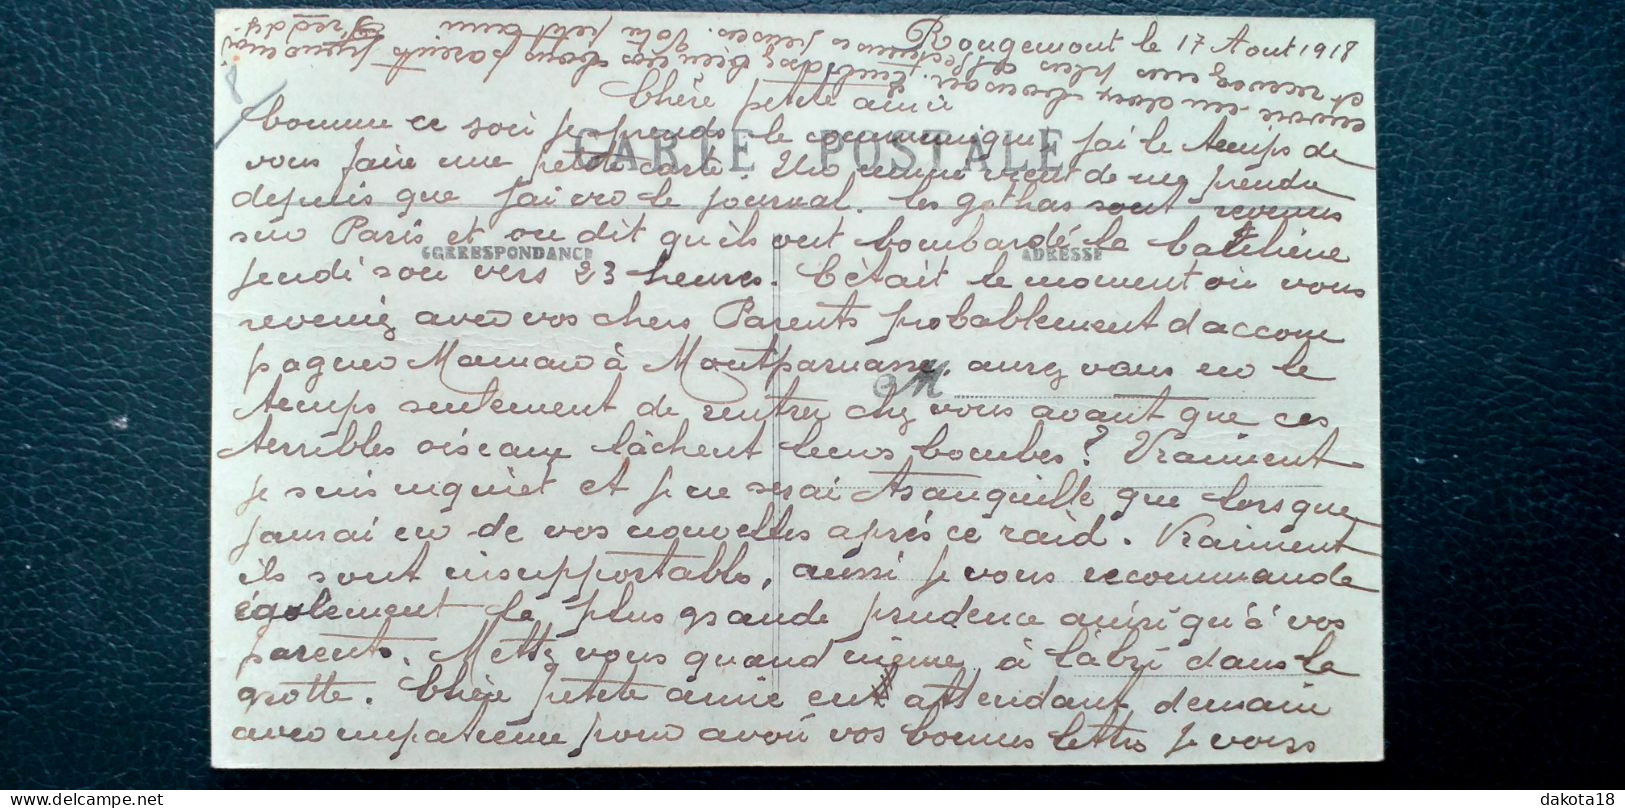 Rougemont le 17 Aout 1918
Chère petite amie
CARTE POSTALE
CORRESPONDANCE
ADRESSE
Comme ce soir je prends le communiqué j'ai le temps de
vous faire une petite carte. Une crainte vient de me prendre
depuis que j'ai vu le journal. Les gothas sont revenus
sur Paris et on dit qu'ils ont bombardé la banlieue
jeudi soir vers 23 heures. C'était le moment où vous
reveniez avec vos chers Parents probablement d'accom
pagner Maman à Montparnasse, aurez vous eu le
temps seulement de rentrer chez vous avant que ces
terribles oiseaux lâchent leurs bombes? Vraiment
je suis inquiet et je ne serai tranquille que lorsque
j'aurai eu de vos nouvelles après ce raid. Vraiment
ils sont insupportables, aussi je vous recommande
également la plus grande prudence ainsi qu'à vos
parents. Mettez vous quand même à l'abri dans la
grotte. Chère petite amie en attendant demain
avec impatience pour avoir vos bonnes lettres je vous
envoie un doux baiser.
et recevez mes plus affectueuses pensées. Votre petit ami
M
8
dakota18